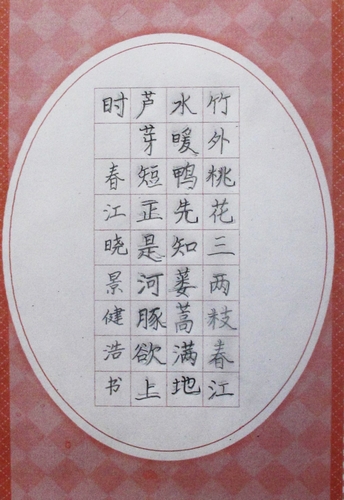 竹外桃花三两枝春江
水暖鸭先知蒌蒿满地
芦芽短正是河豚欲上
时 春江晓景健浩书